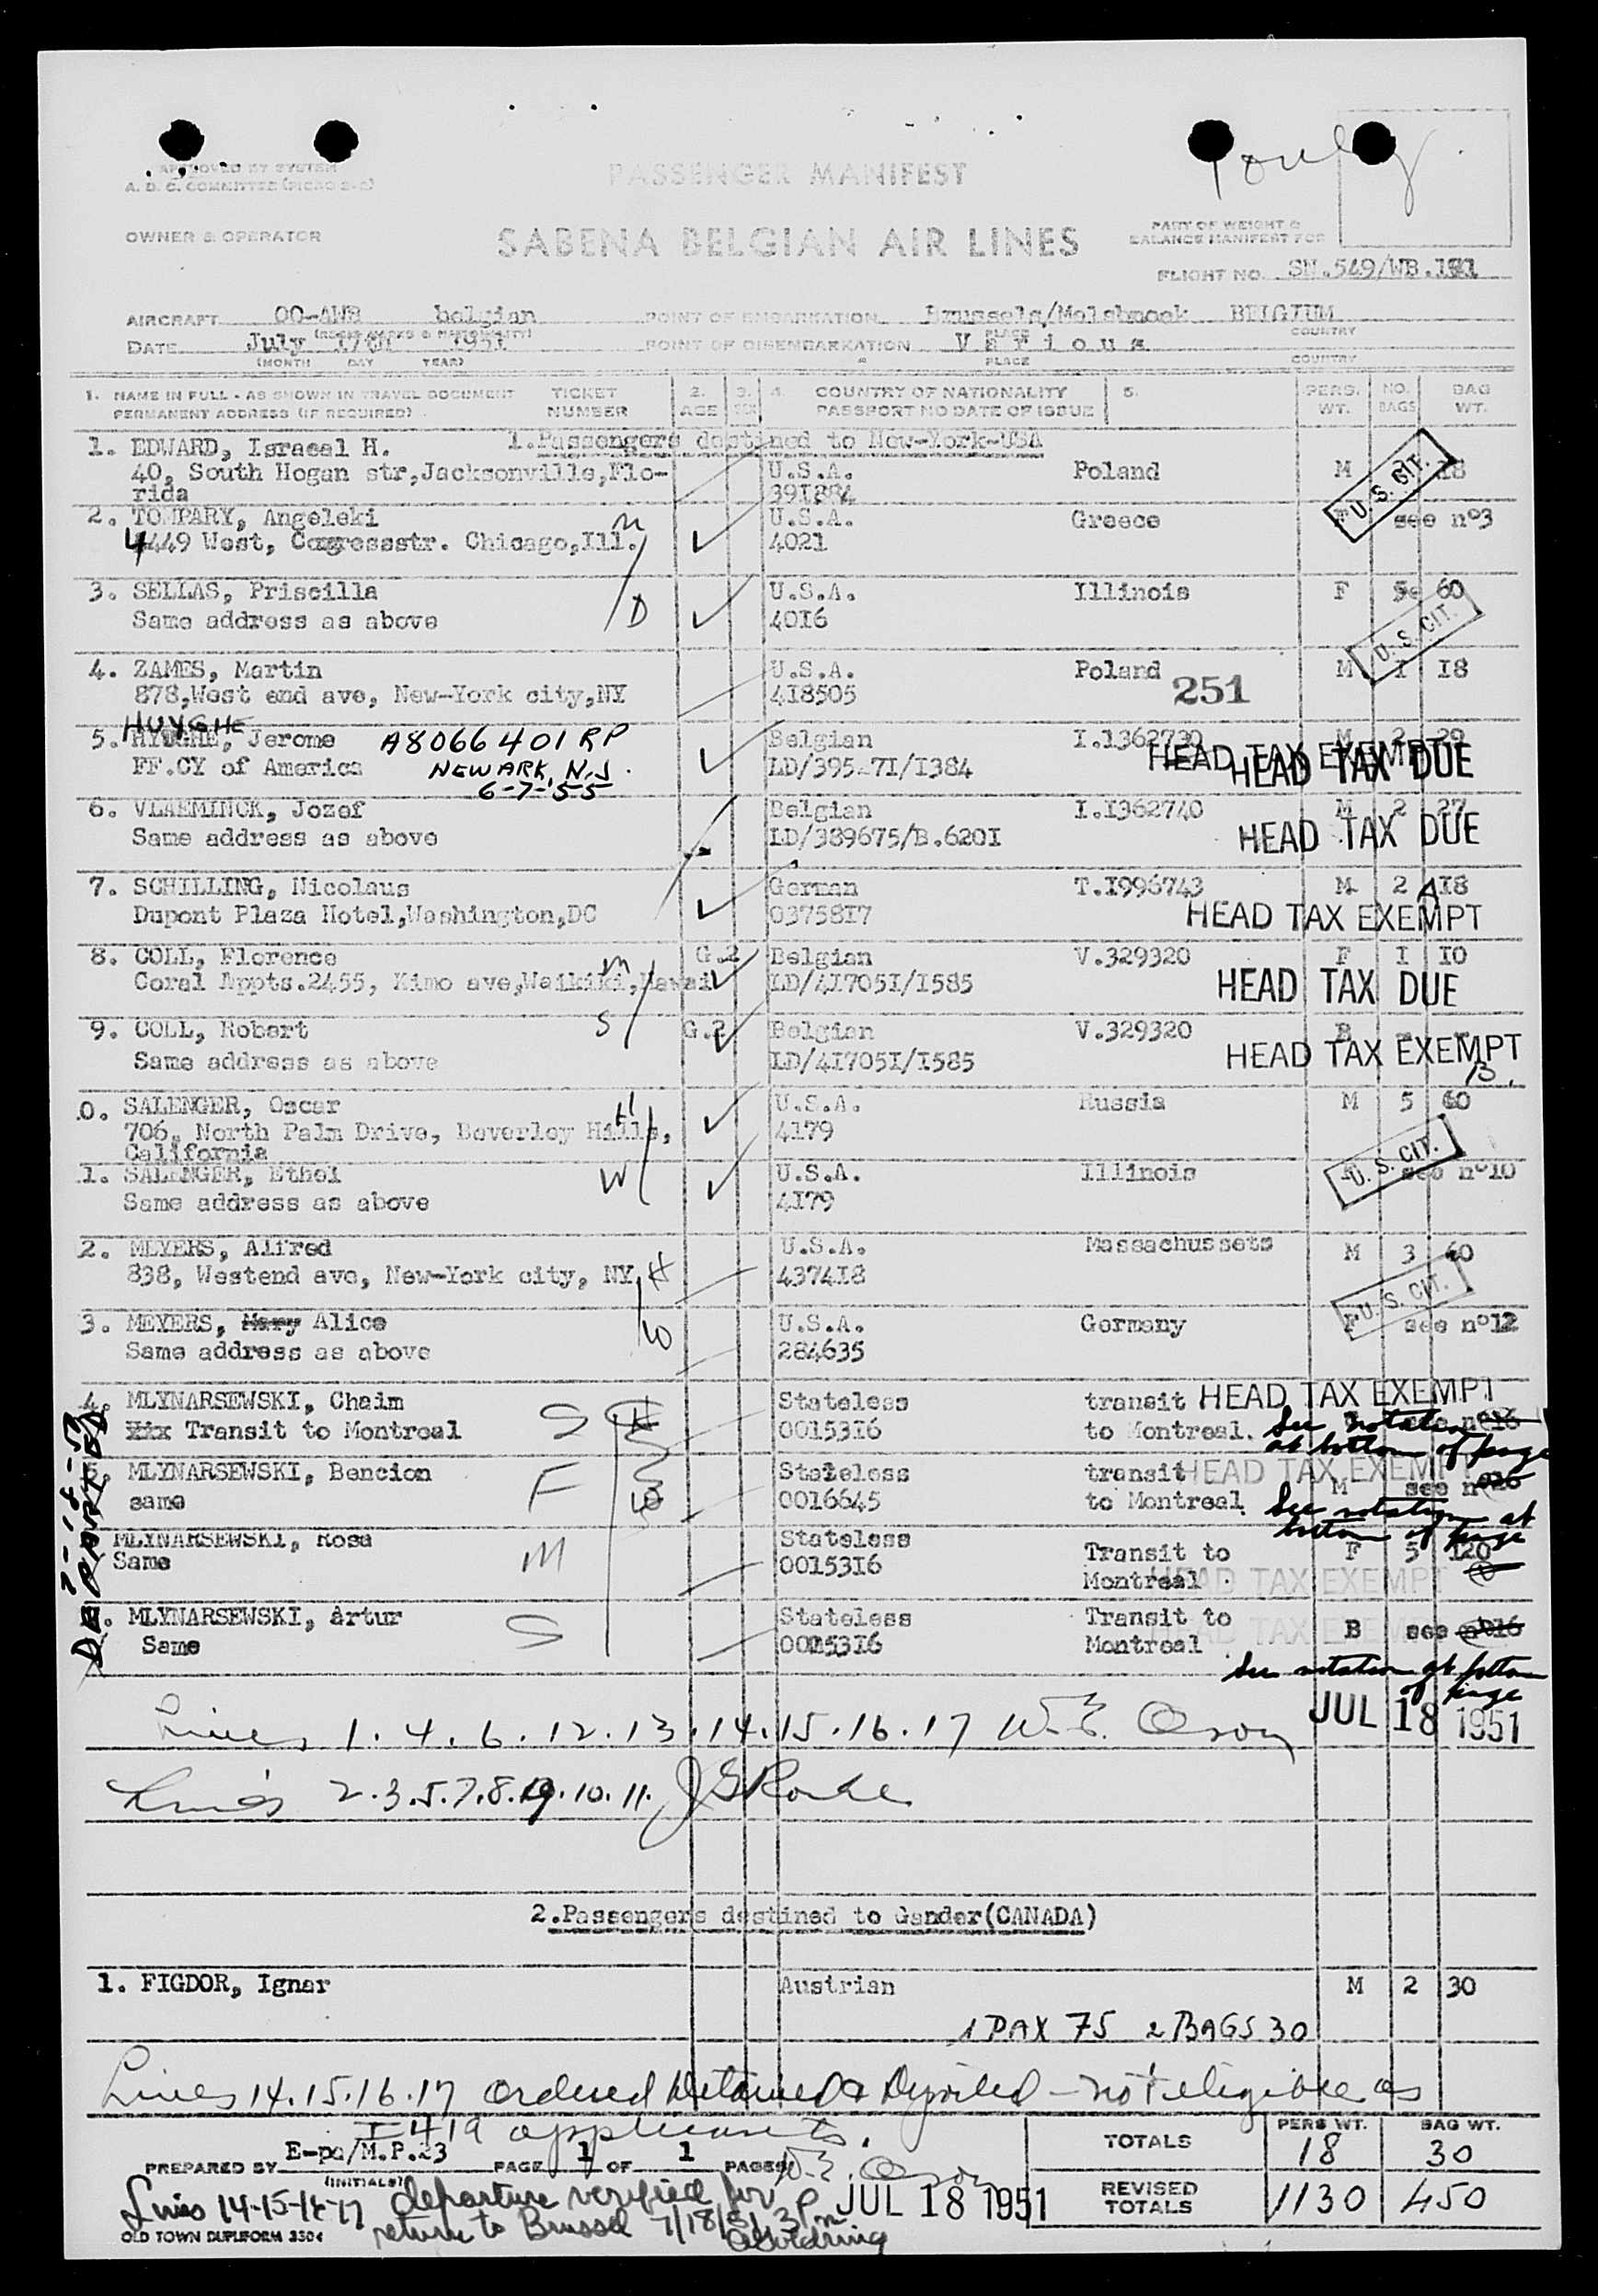 APPROVED BY SYSTEM
A. D. C. COMMITTEE (MICRO 2-2)
PASSENGER MANIFEST
OWNER & OPERATOR
SABENA BELGIAN AIR LINES
PART OF WEIGHT &
BALANCE MANIFEST FOR
FLIGHT NO. SN.549/WB.191
AIRCRAFT OO-AWB belgian POINT OF EMBARKATION Brussels/Melsbroek BELGIUM
PLACE COUNTRY
DATE July 17th 1951 POINT OF DISEMBARKATION Various
(MONTH DAY YEAR) PLACE COUNTRY
1. NAME IN FULL - AS SHOWN IN TRAVEL DOCUMENT TICKET 2. 3. 4. COUNTRY OF NATIONALITY 5. PERS. NO. BAG
PERMANENT ADDRESS (IF REQUIRED) NUMBER AGE SEX PASSPORT NO DATE OF ISSUE WT. BAGS WT.
1.Passengers destined to New-York-USA
1. EDWARD, Israeel H. U.S.A. Poland M 18
40, South Hogan str,Jacksonville,Flo- 391884
rida
U.S. CIT.
2. TOMPARY, Angeleki U.S.A. Greece F see n°3
4449 West, Congressstr. Chicago,Ill. M 4021
3. SELLAS, Priscilla U.S.A. Illinois F 5 60
Same address as above D 4016
U.S. CIT.
4. ZAMES, Martin U.S.A. Poland M 1 18
878,West end ave, New-York city,NY 418505 251
HUYGHE
5. HYUGHE, Jerome A8066401 RP Belgian I.1362730 M 2 29
FF.CY of America NEWARK, N.J. LD/395.71/1384 HEAD TAX EXEMPT HEAD TAX DUE
6-7-55
6. VLAEMINCK, Jozef Belgian I.1362740 M 2 27
Same address as above LD/389675/B.6201 HEAD TAX DUE
7. SCHILLING, Nicolaus German T.1996743 M 2 18
Dupont Plaza Hotel,Washington,DC 0375817 HEAD TAX EXEMPT
8. COLL, Florence G.2 Belgian V.329320 F 1 10
Coral Appts.2455, Kimo ave,Waikiki,Hawai M LD/417051/1585 HEAD TAX DUE
9. COLL, Robert S G.2 Belgian V.329320 B
Same address as above LD/417051/1585 HEAD TAX EXEMPT
B.
0. SALENGER, Oscar H U.S.A. Russia M 5 60
706, North Palm Drive, Beverley Hills, 4179
California
U.S. CIT.
1. SALENGER, Ethel W U.S.A. Illinois see n°10
Same address as above 4179
2. MEYERS, Alfred U.S.A. Massachussets M 3 40
838, Westend ave, New-York city, NY H 437418
U.S. CIT.
3. MEYERS, Mary Alice U.S.A. Germany F see n°12
Same address as above W 284635
4. MLYNARSEWSKI, Chaim S Stateless transit HEAD TAX EXEMPT
xix Transit to Montreal 0015316 to Montreal. See notation
at bottom of page
5. MLYNARSEWSKI, Bencion F Stateless transit HEAD TAX EXEMPT
same 0016645 to Montreal M see n°16
See notation at
bottom of page
MLYNARSEWSKI, Rosa M Stateless Transit to F 5 120
Same 0015316 Montreal HEAD TAX EXEMPT
. MLYNARSEWSKI, Artur S Stateless Transit to B see n°16
Same 0015316 Montreal HEAD TAX EXEMPT
See notation at bottom
of page
DEPARTED
Lines 1.4.6.12.13.14.15.16.17 JUL 18 1951
Lines 2.3.5.7.8.9.10.11.
2.Passengers destined to Gander(CANADA)
1. FIGDOR, Ignar Austrian M 2 30
1 PAX 75 2 BAGS 30
Lines 14.15.16.17 ordered detained & deported - not eligible as
I 419 applicants.
TOTALS PERS WT. 18 BAG WT. 30
PREPARED BY E-pa/M.P.23 PAGE 1 OF 1 PAGES
(INITIALS)
REVISED TOTALS 1130 450
Lines 14-15-16-17 departure verified for
return to Brussel 7/18/51 3 Pm
JUL 18 1951
OLD TOWN DUPLIFORM 3304